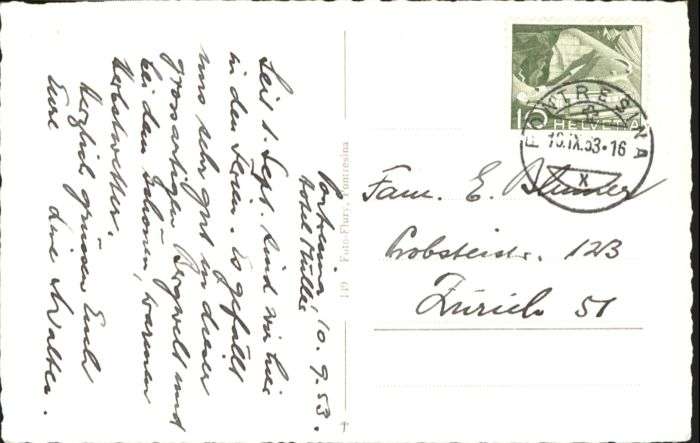 Pontresina, 10.9.53.
Hotel Müller
Seit 1. Sept. sind wir hier
in den Ferien. Es gefällt
uns sehr gut in dieser
grossartigen Bergwelt und
bei dem schönen, warmen
Herbstwetter.
Herzlich grüssen Euch
Eure
Walter.
149 Foto-Flury, Pontresina
10
HELVETIA
PONTRESINA
10.IX.53-16
X
Fam. E. Blumer
Probsteistr. 123
Zürich 51